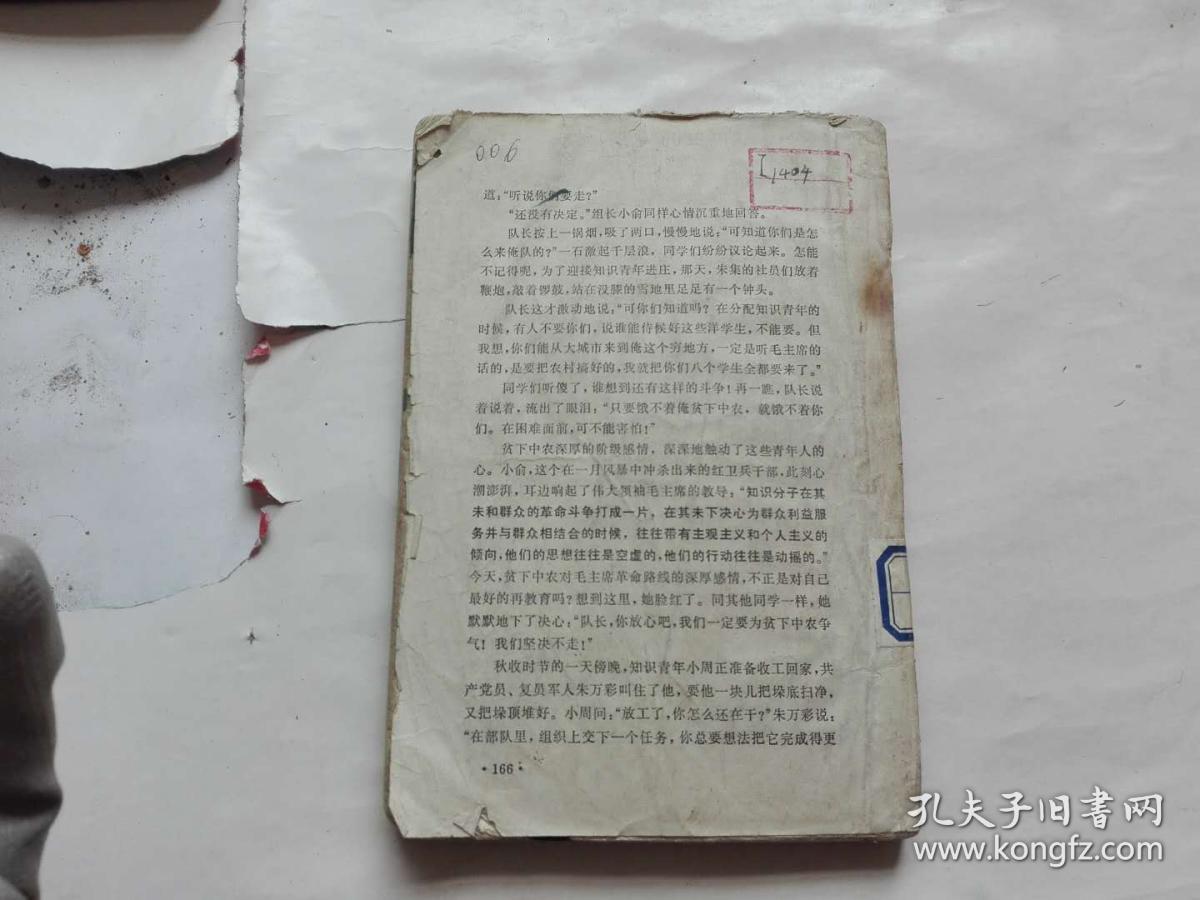 006
I1404
道：“听说你们要走？”
“还没有决定。”组长小俞同样心情沉重地回答。
队长按上一锅烟，吸了两口，慢慢地说：“可知道你们是怎
么来俺队的？”一石激起千层浪，同学们纷纷议论起来。怎能
不记得呢，为了迎接知识青年进庄，那天，朱集的社员们放着
鞭炮，敲着锣鼓，站在没膝的雪地里足足有一个钟头。
队长这才激动地说：“可你们知道吗？在分配知识青年的
时候，有人不要你们，说谁能侍候好这些洋学生，不能要。但
我想，你们能从大城市来到俺这个穷地方，一定是听毛主席的
话的，是要把农村搞好的，我就把你们八个学生全都要来了。”
同学们听傻了，谁想到还有这样的斗争！再一瞧，队长说
着说着，流出了眼泪：“只要饿不着俺贫下中农，就饿不着你
们。在困难面前，可不能害怕！”
贫下中农深厚的阶级感情，深深地触动了这些青年人的
心。小俞，这个在一月风暴中冲杀出来的红卫兵干部，此刻心
潮澎湃，耳边响起了伟大领袖毛主席的教导：“知识分子在其
未和群众的革命斗争打成一片，在其未下决心为群众利益服
务并与群众相结合的时候，往往带有主观主义和个人主义的
倾向，他们的思想往往是空虚的，他们的行动往往是动摇的。”
今天，贫下中农对毛主席革命路线的深厚感情，不正是对自己
最好的再教育吗？想到这里，她脸红了。同其他同学一样，她
默默地下了决心：“队长，你放心吧，我们一定要为贫下中农争
气！我们坚决不走！”
秋收时节的一天傍晚，知识青年小周正准备收工回家，共
产党员、复员军人朱万彩叫住了他，要他一块儿把垛底扫净，
又把垛顶堆好。小周问：“放工了，你怎么还在干？”朱万彩说：
“在部队里，组织上交下一个任务，你总要想法把它完成得更
·166·
孔夫子旧书网
www.kongfz.com